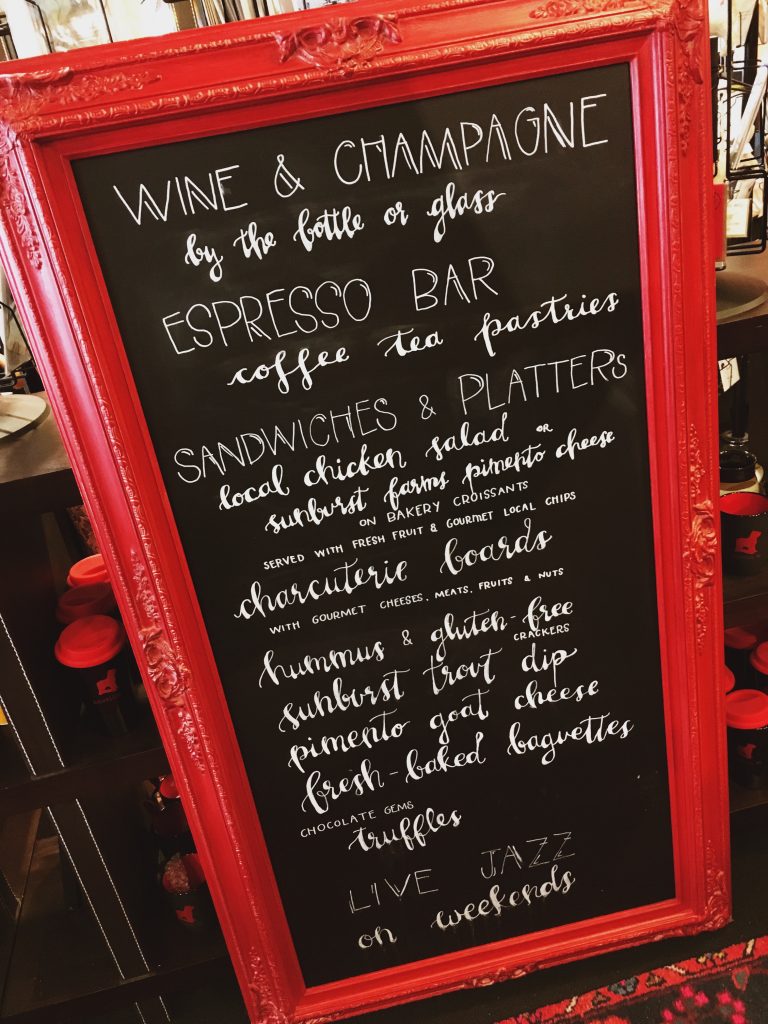 WINE & CHAMPAGNE
by the bottle or glass
ESPRESSO BAR
coffee tea pastries
SANDWICHES & PLATTERS
local chicken salad OR
sunburst farms pimento cheese
ON BAKERY CROISSANTS
SERVED WITH FRESH FRUIT & GOURMET LOCAL CHIPS
charcuterie boards
WITH GOURMET CHEESES, MEATS, FRUITS & NUTS
hummus & gluten-free
CRACKERS
sunburst trout dip
pimento goat cheese
fresh-baked baguettes
CHOCOLATE GEMS
truffles
LIVE JAZZ
on weekends